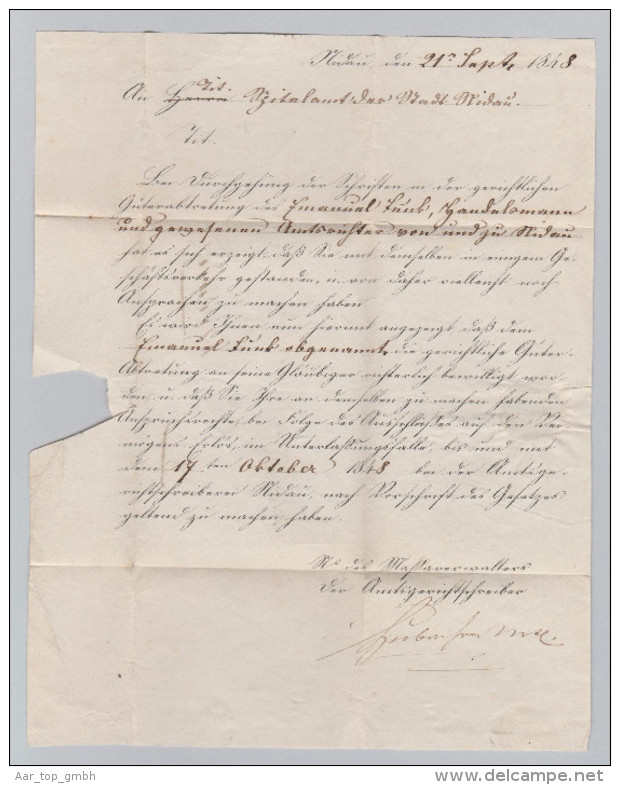 Nidau, den 21n Septr 1848
Tit.
An Herrn Spitalamt der Stadt Nidau.
Tit.
Bei Durchgehung der Schriften in der gerichtlichen
Güterabtretung des Emanuel Funk, Handelsmann
und gewesenen Amtsrichter von und zu Nidau
hat es sich erzeigt, daß Sie mit demselben in einigem Ge-
schäftsverkehr gestanden, u. von daher vielleicht noch
Ansprachen zu machen haben
Es wird Ihnen nun hiermit angezeigt, daß dem
Emanuel Funk obgenannt, die gerichtliche Güter-
Abtretung an seine Gläubiger richterlich bewilligt wor-
den u. daß Sie Ihre an demselben zu machen habenden
Anspruchsrechte, bei Folge des Ausschlusses auf den Ver-
mögens Erlös, im Unterlaßungsfalle, bis und mit
dem 17ten Oktober 1848 bei der Amtsge-
richtschreiberei Nidau, nach Vorschrift des Gesetzes
geltend zu machen haben.
Ns des Massaverwalters
Der Amtsgerichtschreiber
Aar_top_gmbh
www.delcampe.net